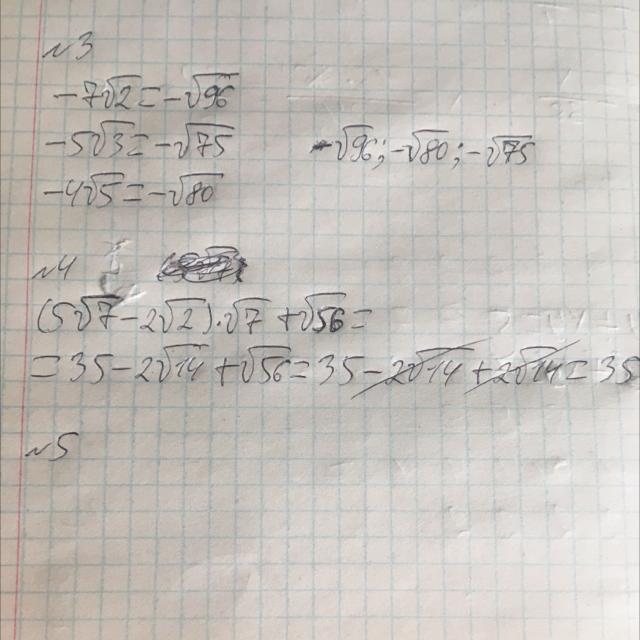 №3
-7√2 = -√96
-5√3 = -√75
-√96; -√80; -√75
-4√5 = -√80
№4
(5√7 - 2√2)·√7 + √56 =
= 35 - 2√14 + √56 = 35 - 2√14 + 2√14 = 35
№5